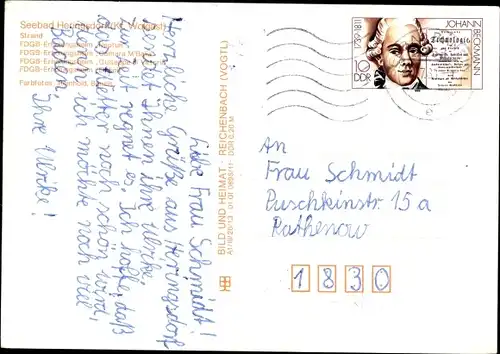 Seebad Heringsdorf (Kr. Wolgast)
Strand
FDGB-Erholungsheim
FDGB-Erholungsheim
FDGB-Erholungsheim
Farbfotos:
BILD UND HEIMAT · REICHENBACH (VOGTL)
A1/B/26/13 01 07 DDR 0,20 M
Liebe Frau Schmidt!
Herzliche Grüße aus Heringsdorf
sendet Ihnen Ihre Ulrike.
regnet es. Ich hoffe, daß
das Wetter noch schön wird,
denn ich möchte noch viel
Baden.
Ihre Ulrike!
JOHANN
BECKMANN
1739-1811
Technologie
10
DDR
An
Frau Schmidt
Puschkinstr 15a
Rathenow
1830